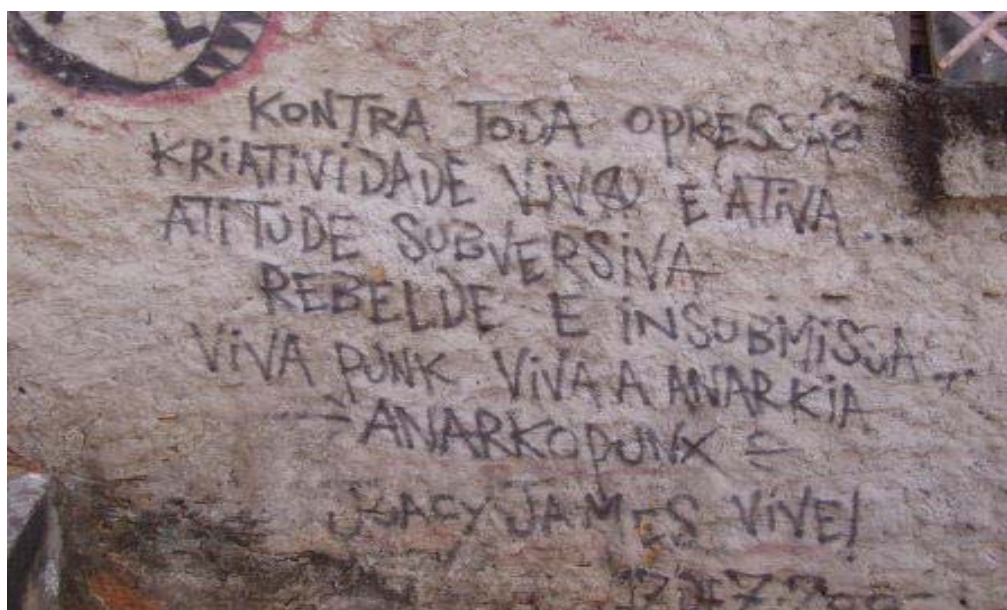 KONTRA TODA OPRESSÃO
KRIATIVIDADE VIVA E ATIVA...
ATITUDE SUBVERSIVA
REBELDE E INSUBMISSA...
VIVA PUNK VIVA A ANARKIA
ANARKOPUNX
JAMES VIVE!